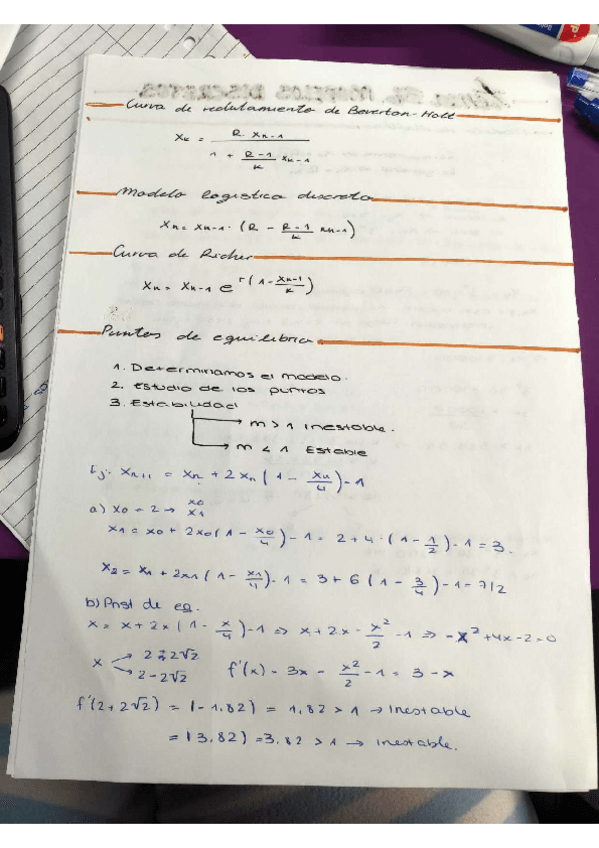 Curva de reclutamiento de Beverton-Holt
Xk = R. Xn-1 / 1 + R-1/K Xn-1
Modelo logistica discreto
Xn = Xn-1 . (R - R-1/K Xn-1)
Curva de Richer
Xn = Xn-1 e^r(1 - Xn-1/K)
Puntos de equilibrio
1. Determinamos el modelo.
2. Estudio de los puntos
3. Estabilidad
→ m > 1 Inestable.
→ m < 1 Estable
Ej: Xn+1 = Xn + 2Xn (1 - Xn/4) - 1
a) X0 = 2 → X0 X1
X1 = X0 + 2X0 (1 - X0/4) - 1 = 2 + 4 · (1 - 1/2) - 1 = 3.
X2 = X1 + 2X1 (1 - X1/4) - 1 = 3 + 6 (1 - 3/4) - 1 = 7/2
b) Pnst de eq.
X = X + 2X (1 - X/4) - 1 => X + 2X - X²/2 - 1 => -X² + 4X - 2 = 0
X 2 + 2√2
2 - 2√2
f'(x) = 3x - x²/2 - 1 = 3 - x
f'(2 + 2√2) = |-1,82| = 1,82 > 1 → Inestable
= |3,82| = 3,82 > 1 → inestable.